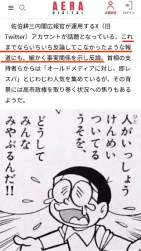 AERA
DIGITAL
佐伯耕三内閣広報官が運用するX(旧
Twitter)アカウントが話題となっている。これ
までならいちいち反論してこなかったような報
道にも、細かく事実関係を示し反論。首相の支
持者からは「オールドメディアに対し、即レ
スパ」とじわじわ人気を集めているが、その背
景には高市政権を取り巻く状況への焦りもある
ようだ。
人がいっしょう
けんめい
ついてる
うそを。
どうして
みんな
みやぶるんだ!!